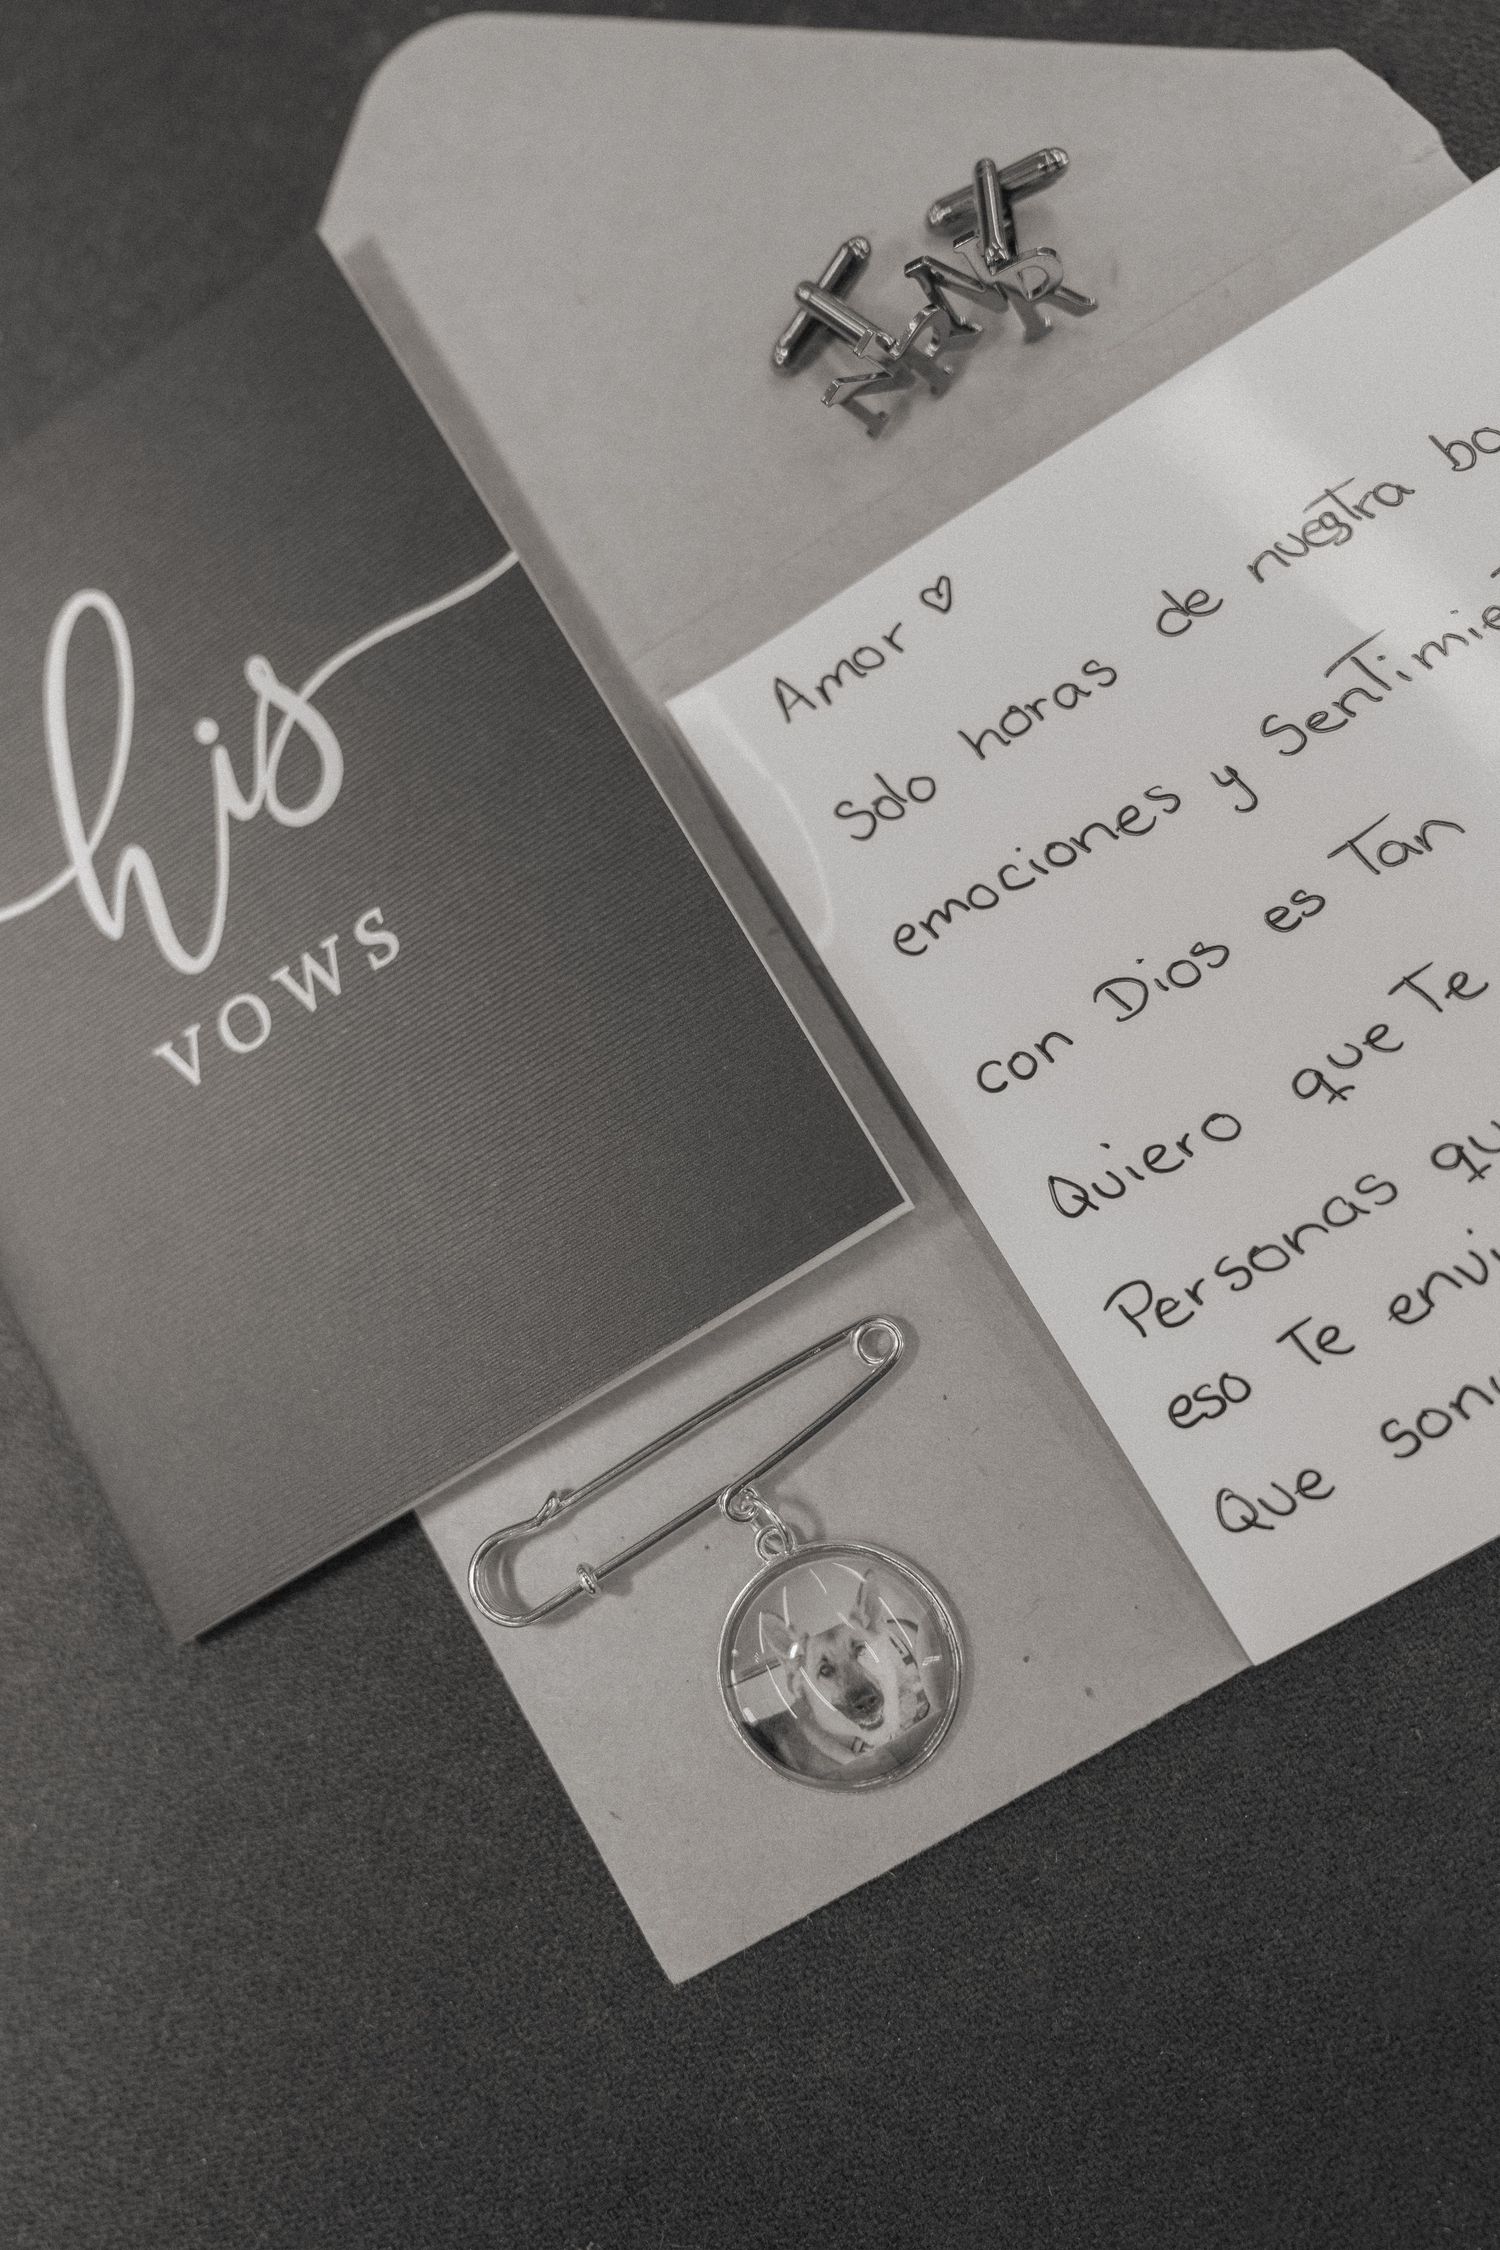 his
VOWS
NR
NR
Amor ♡
Solo horas de nuestra
emociones y Sentimie
con Dios es Tan
Quiero que Te
Personas qu
eso Te envi
Que son